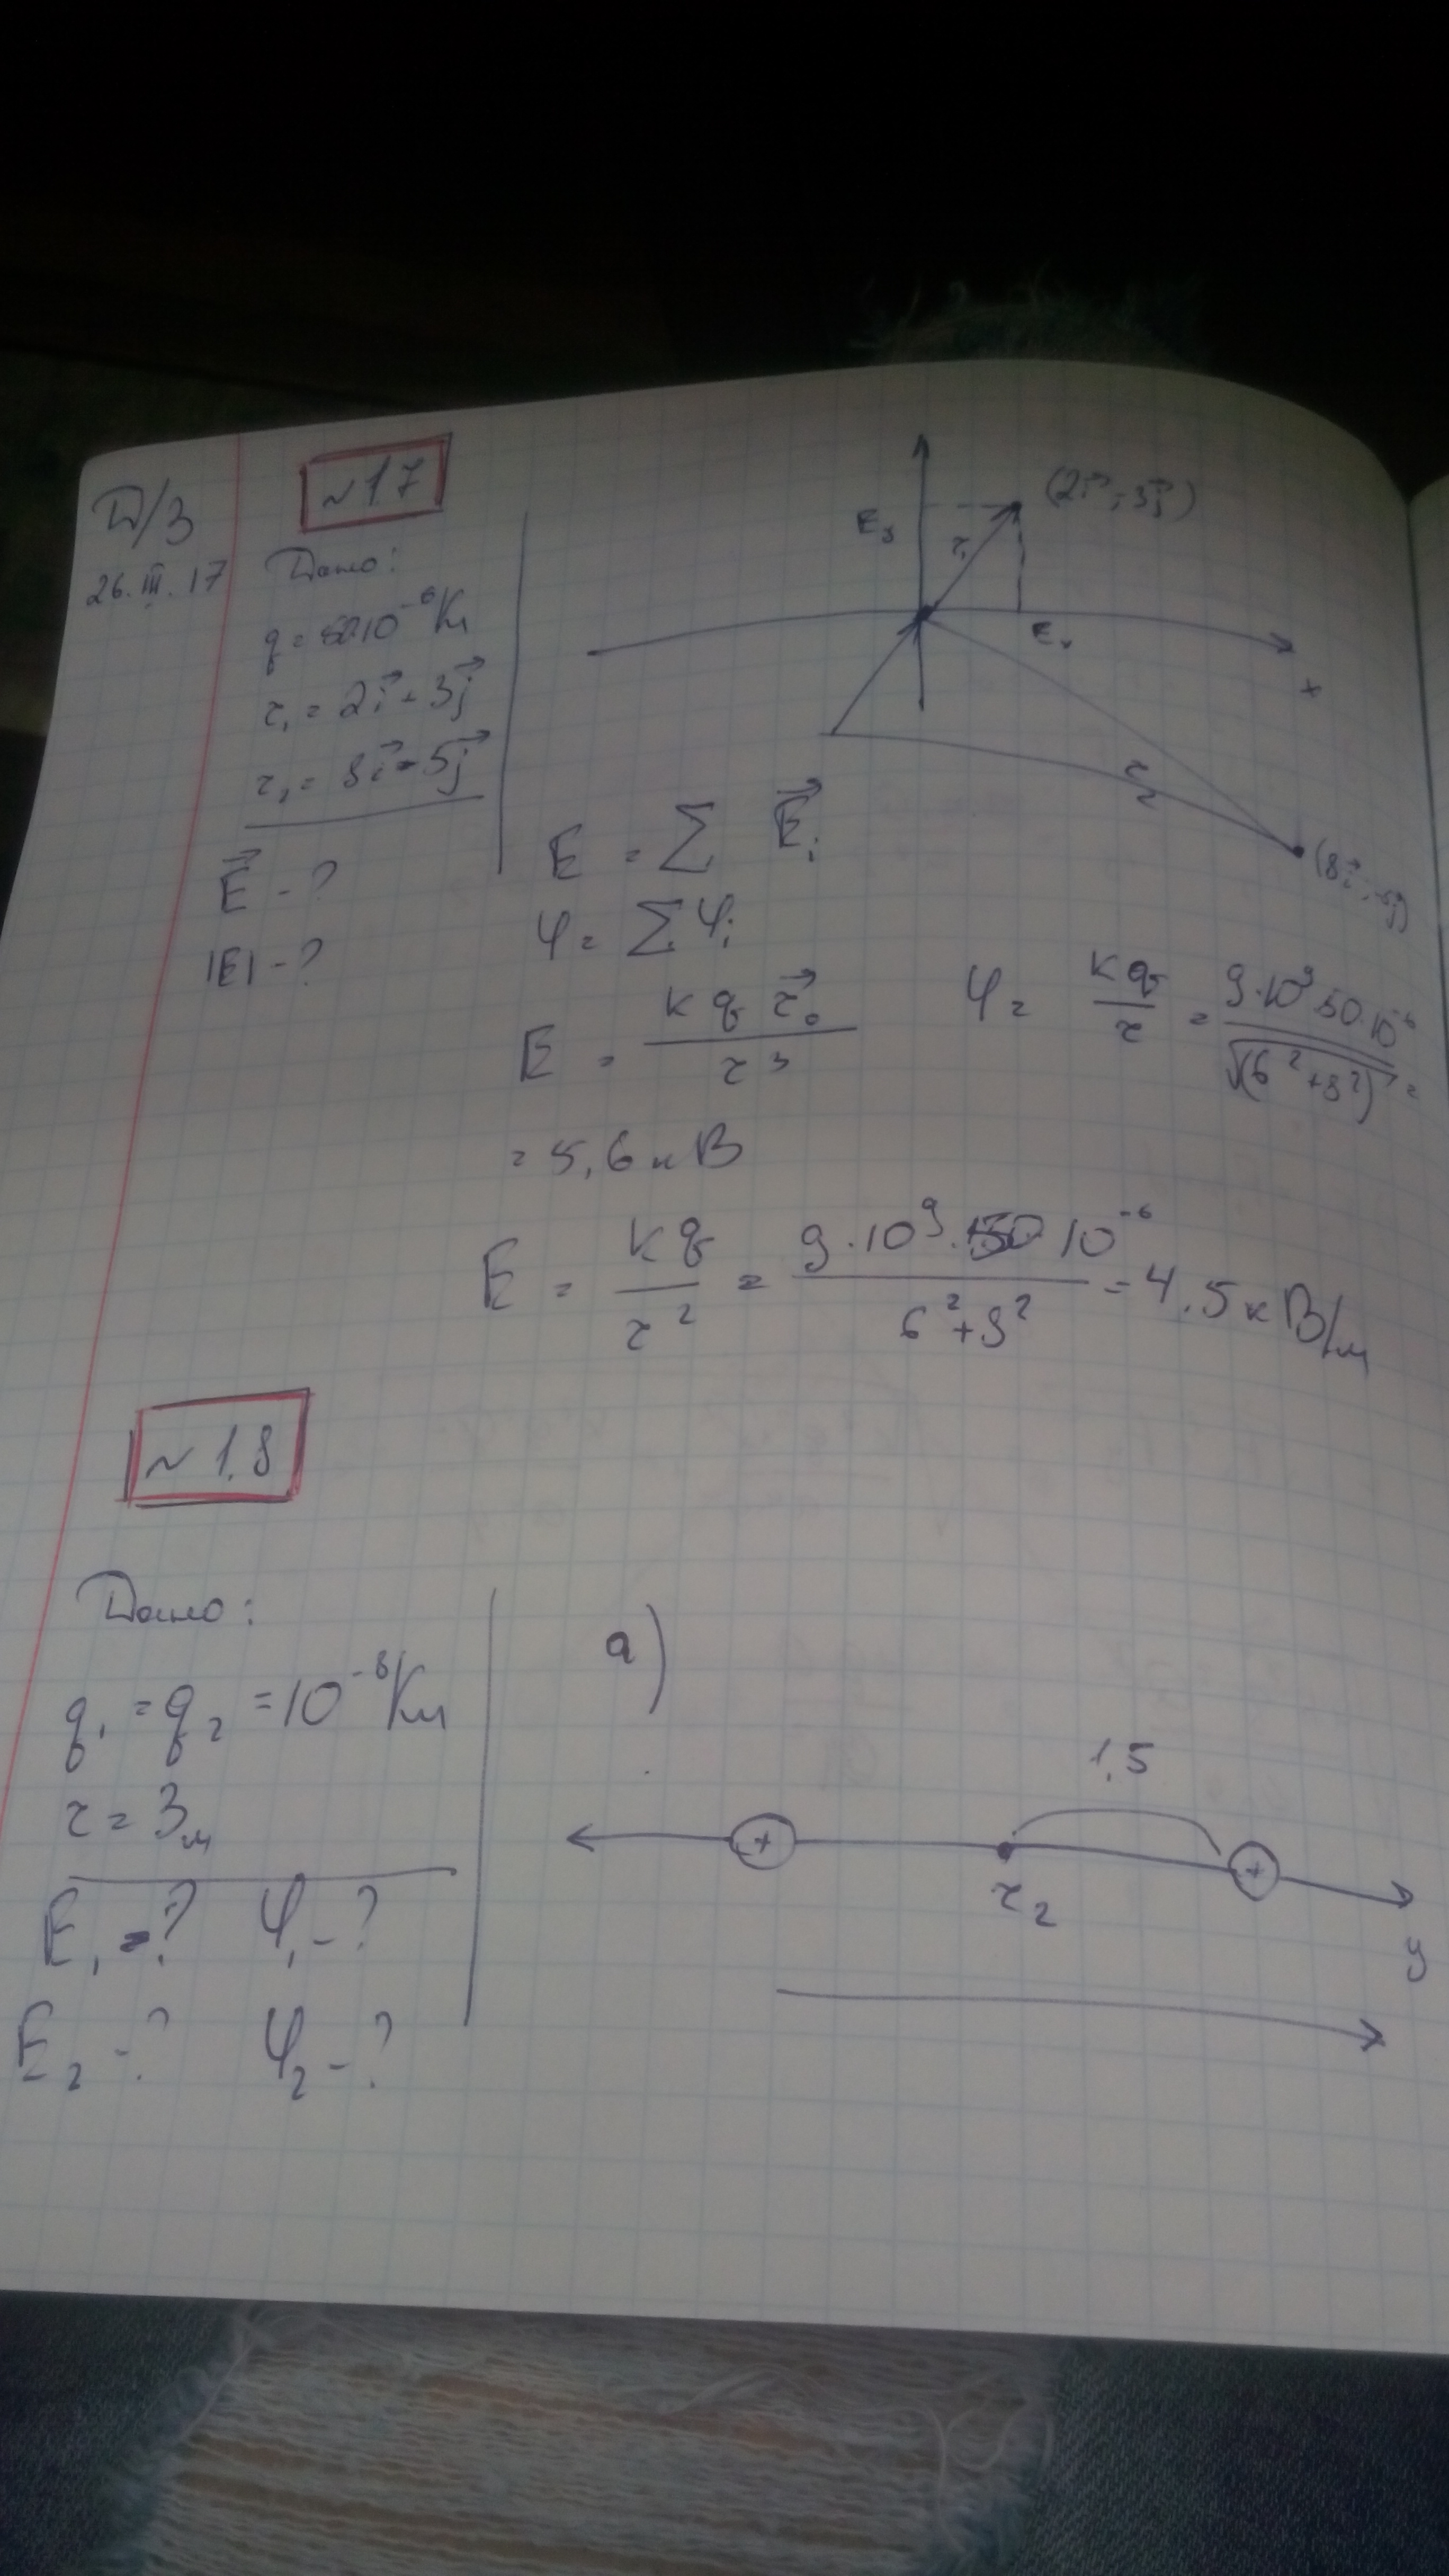 Д/З
26.III.17
~17
Дано:
q = 50·10⁻⁶ Кл
r₁ = 2i⃗ + 3j⃗
r₂ = 8i⃗ - 5j⃗
E⃗ - ?
|E| - ?
(2i⃗; 3j⃗)
r₁
x
r₂
E = ∑ E⃗ᵢ
φ = ∑ φᵢ
E = kq r⃗₀ / r³
φ = kq / r = 9·10⁹ 50·10⁻⁶ / √(6² + 8²) =
= 5,6 кВ
E = kq / r² = 9·10⁹·50·10⁻⁶ / 6² + 8² = 4.5 кВ/м
~1.8
Дано:
q₁ = q₂ = 10⁻⁸ Кл
r = 3м
E₁ - ? φ₁ - ?
E₂ - ? φ₂ - ?
а)
1,5
+
+
r₂
y